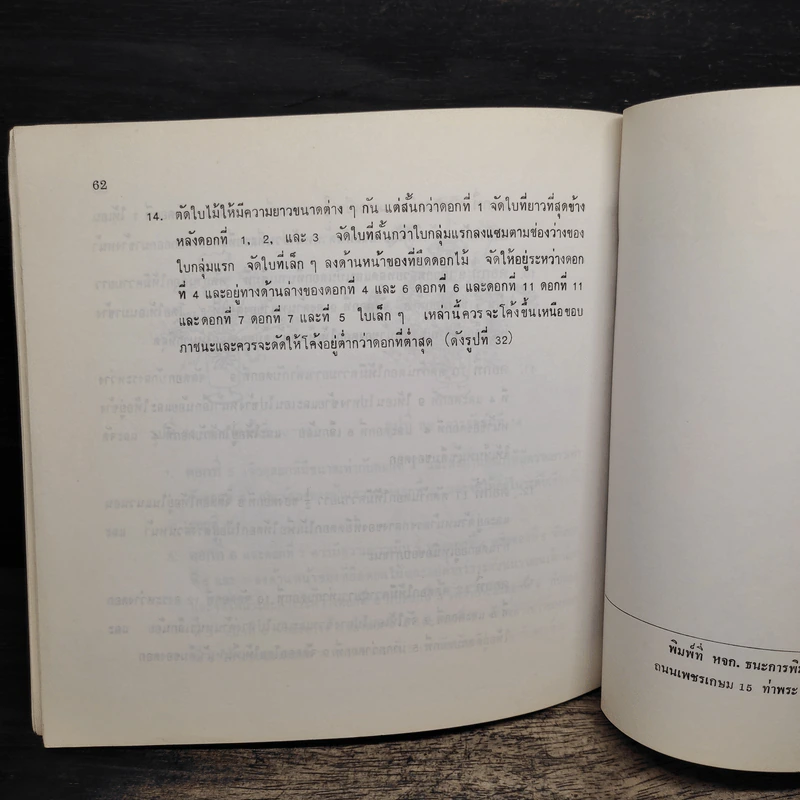 62
14. ตัดใบไม้ให้มีความยาวขนาดต่าง ๆ กัน แต่สั้นกว่าดอกที่ 1 จัดใบที่ยาวที่สุดข้าง
หลังดอกที่ 1, 2, และ 3 จัดใบที่สั้นกว่าใบกลุ่มแรกลงแซมตามช่องว่างของ
ใบกลุ่มแรก จัดใบที่เล็ก ๆ ลงด้านหน้าของที่ยึดดอกไม้ จัดให้อยู่ระหว่างดอก
ที่ 4 และอยู่ทางด้านล่างของดอกที่ 4 และ 6 ดอกที่ 6 และดอกที่ 11 ดอกที่ 11
และดอกที่ 7 ดอกที่ 7 และที่ 5 ใบเล็ก ๆ เหล่านี้ควรจะโค้งขึ้นเหนือขอบ
ภาชนะและควรจะดัดให้โค้งอยู่ต่ำกว่าดอกที่ต่ำสุด (ดังรูปที่ 32)
พิมพ์ที่ หจก. ธนะการพิม
ถนนเพชรเกษม 15 ท่าพระ